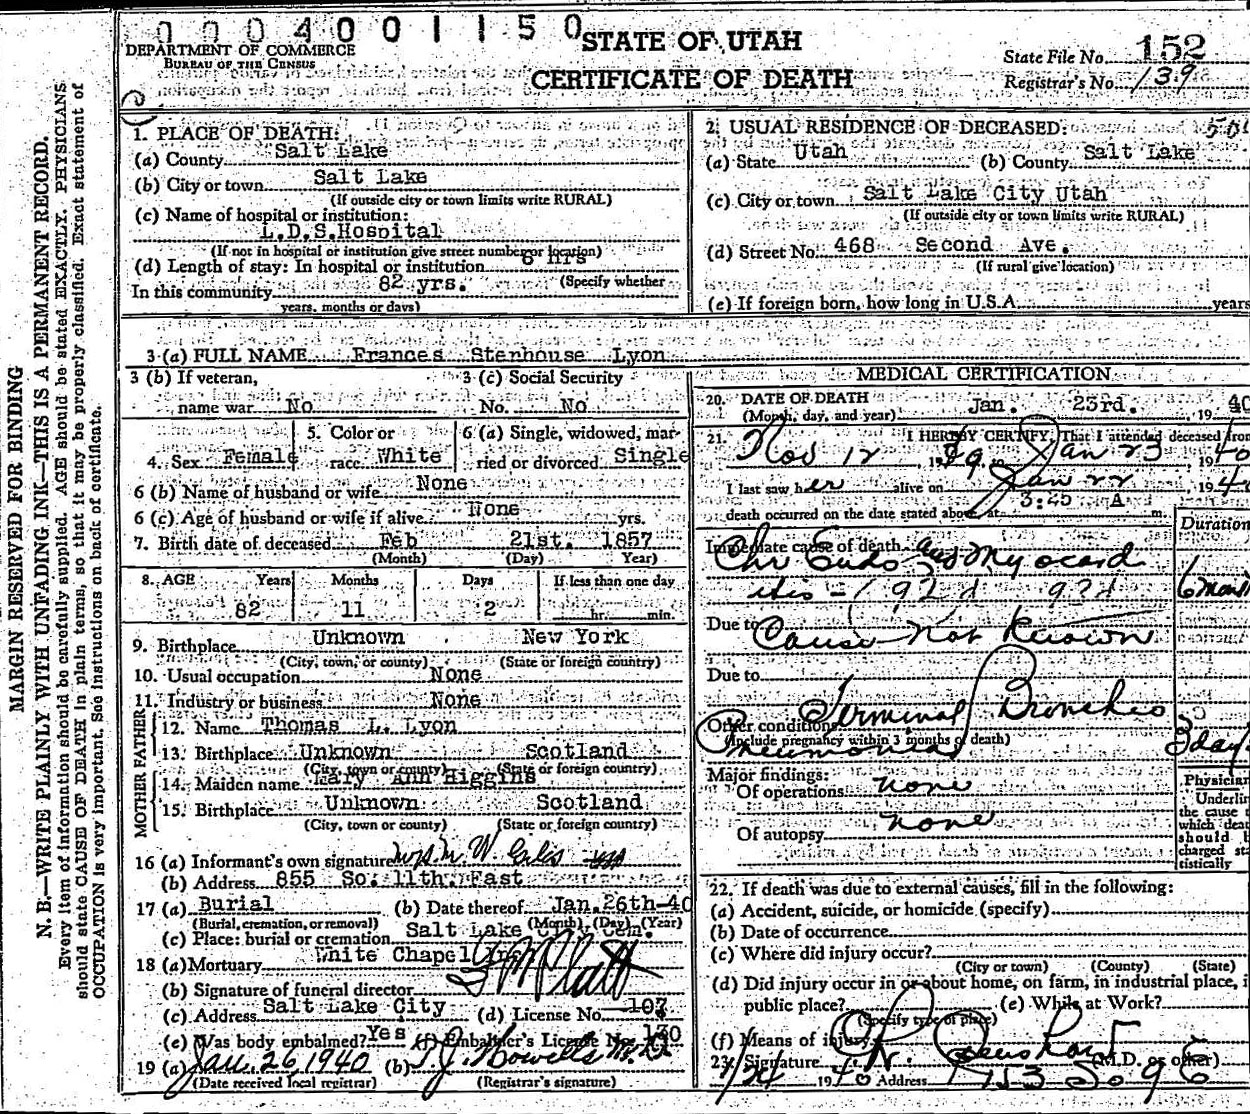 0004001150
DEPARTMENT OF COMMERCE
BUREAU OF THE CENSUS
STATE OF UTAH
CERTIFICATE OF DEATH
State File No. 152
Registrar's No. 139
MARGIN RESERVED FOR BINDING
N. B.—WRITE PLAINLY WITH UNFADING INK—THIS IS A PERMANENT RECORD.
Every item of information should be carefully supplied. AGE should be stated EXACTLY. PHYSICIANS
should state CAUSE OF DEATH in plain terms, so that it may be properly classified. Exact statement of
OCCUPATION is very important. See instructions on back of certificate.
1. PLACE OF DEATH:
(a) County Salt Lake
(b) City or town Salt Lake
(If outside city or town limits write RURAL)
(c) Name of hospital or institution:
L.D.S.Hospital
(If not in hospital or institution give street number or location)
(d) Length of stay: In hospital or institution 6 hrs
(Specify whether
In this community 82 yrs.
years, months or days)
2. USUAL RESIDENCE OF DECEASED:
(a) State Utah (b) County Salt Lake
(c) City or town Salt Lake City Utah
(If outside city or town limits write RURAL)
(d) Street No. 468 Second Ave.
(If rural give location)
(e) If foreign born, how long in U.S.A. years
3 (a) FULL NAME Frances Stenhouse Lyon
3 (b) If veteran, name war No
3 (c) Social Security No. No
4. Sex Female
5. Color or race White
6 (a) Single, widowed, married or divorced Single
6 (b) Name of husband or wife None
6 (c) Age of husband or wife if alive None yrs.
7. Birth date of deceased Feb 21st. 1857
(Month) (Day) Year)
8. AGE Years Months Days If less than one day
82 11 2 hr. min.
9. Birthplace Unknown New York
(City, town, or county) (State or foreign country)
10. Usual occupation None
11. Industry or business None
FATHER
12. Name Thomas L. Lyon
13. Birthplace Unknown Scotland
(City, town or county) (State or foreign country)
MOTHER
14. Maiden name Mary Ann Higgins
15. Birthplace Unknown Scotland
(City, town or county) (State or foreign country)
16 (a) Informant's own signature
(b) Address 855 So. 11th. East
17 (a) Burial (b) Date thereof Jan.26th-40
(Burial, cremation, or removal) (Month) (Day) (Year)
(c) Place: burial or cremation Salt Lake City Cem.
18 (a) Mortuary White Chapel
(b) Signature of funeral director
(c) Address Salt Lake City (d) License No. 107
(e) Was body embalmed? Yes (f) Embalmer's License No. 130
19 (a) Jan. 26, 1940 (b) T. J. Howells M.D.
(Date received local registrar) (Registrar's signature)
MEDICAL CERTIFICATION
20. DATE OF DEATH
(Month, day, and year) Jan. 23rd. , 19 40
21. I HEREBY CERTIFY, That I attended deceased from
Nov 12, 1939, to Jan 23, 1940
I last saw her alive on Jan 22, 1940
death occurred on the date stated above, at 3:25 A m.
Duration
Immediate cause of death Chr Endo and Myocard
itis - 6 months
Due to Cause not known
Due to
Other conditions Terminal Broncho
(Include pregnancy within 3 months of death)
Pneumonia 3 days
Major findings:
Of operations none
Of autopsy none
Physician
Underlin
the cause t
which deat
should b
charged sta
tistically
22. If death was due to external causes, fill in the following:
(a) Accident, suicide, or homicide (specify)
(b) Date of occurrence
(c) Where did injury occur?
(City or town) (County) (State)
(d) Did injury occur in or about home, on farm, in industrial place, i
public place? (e) While at Work?
(Specify type of place)
(f) Means of injury
23. Signature (M.D. or other)
1/24 1940 Address 753 So 9 E